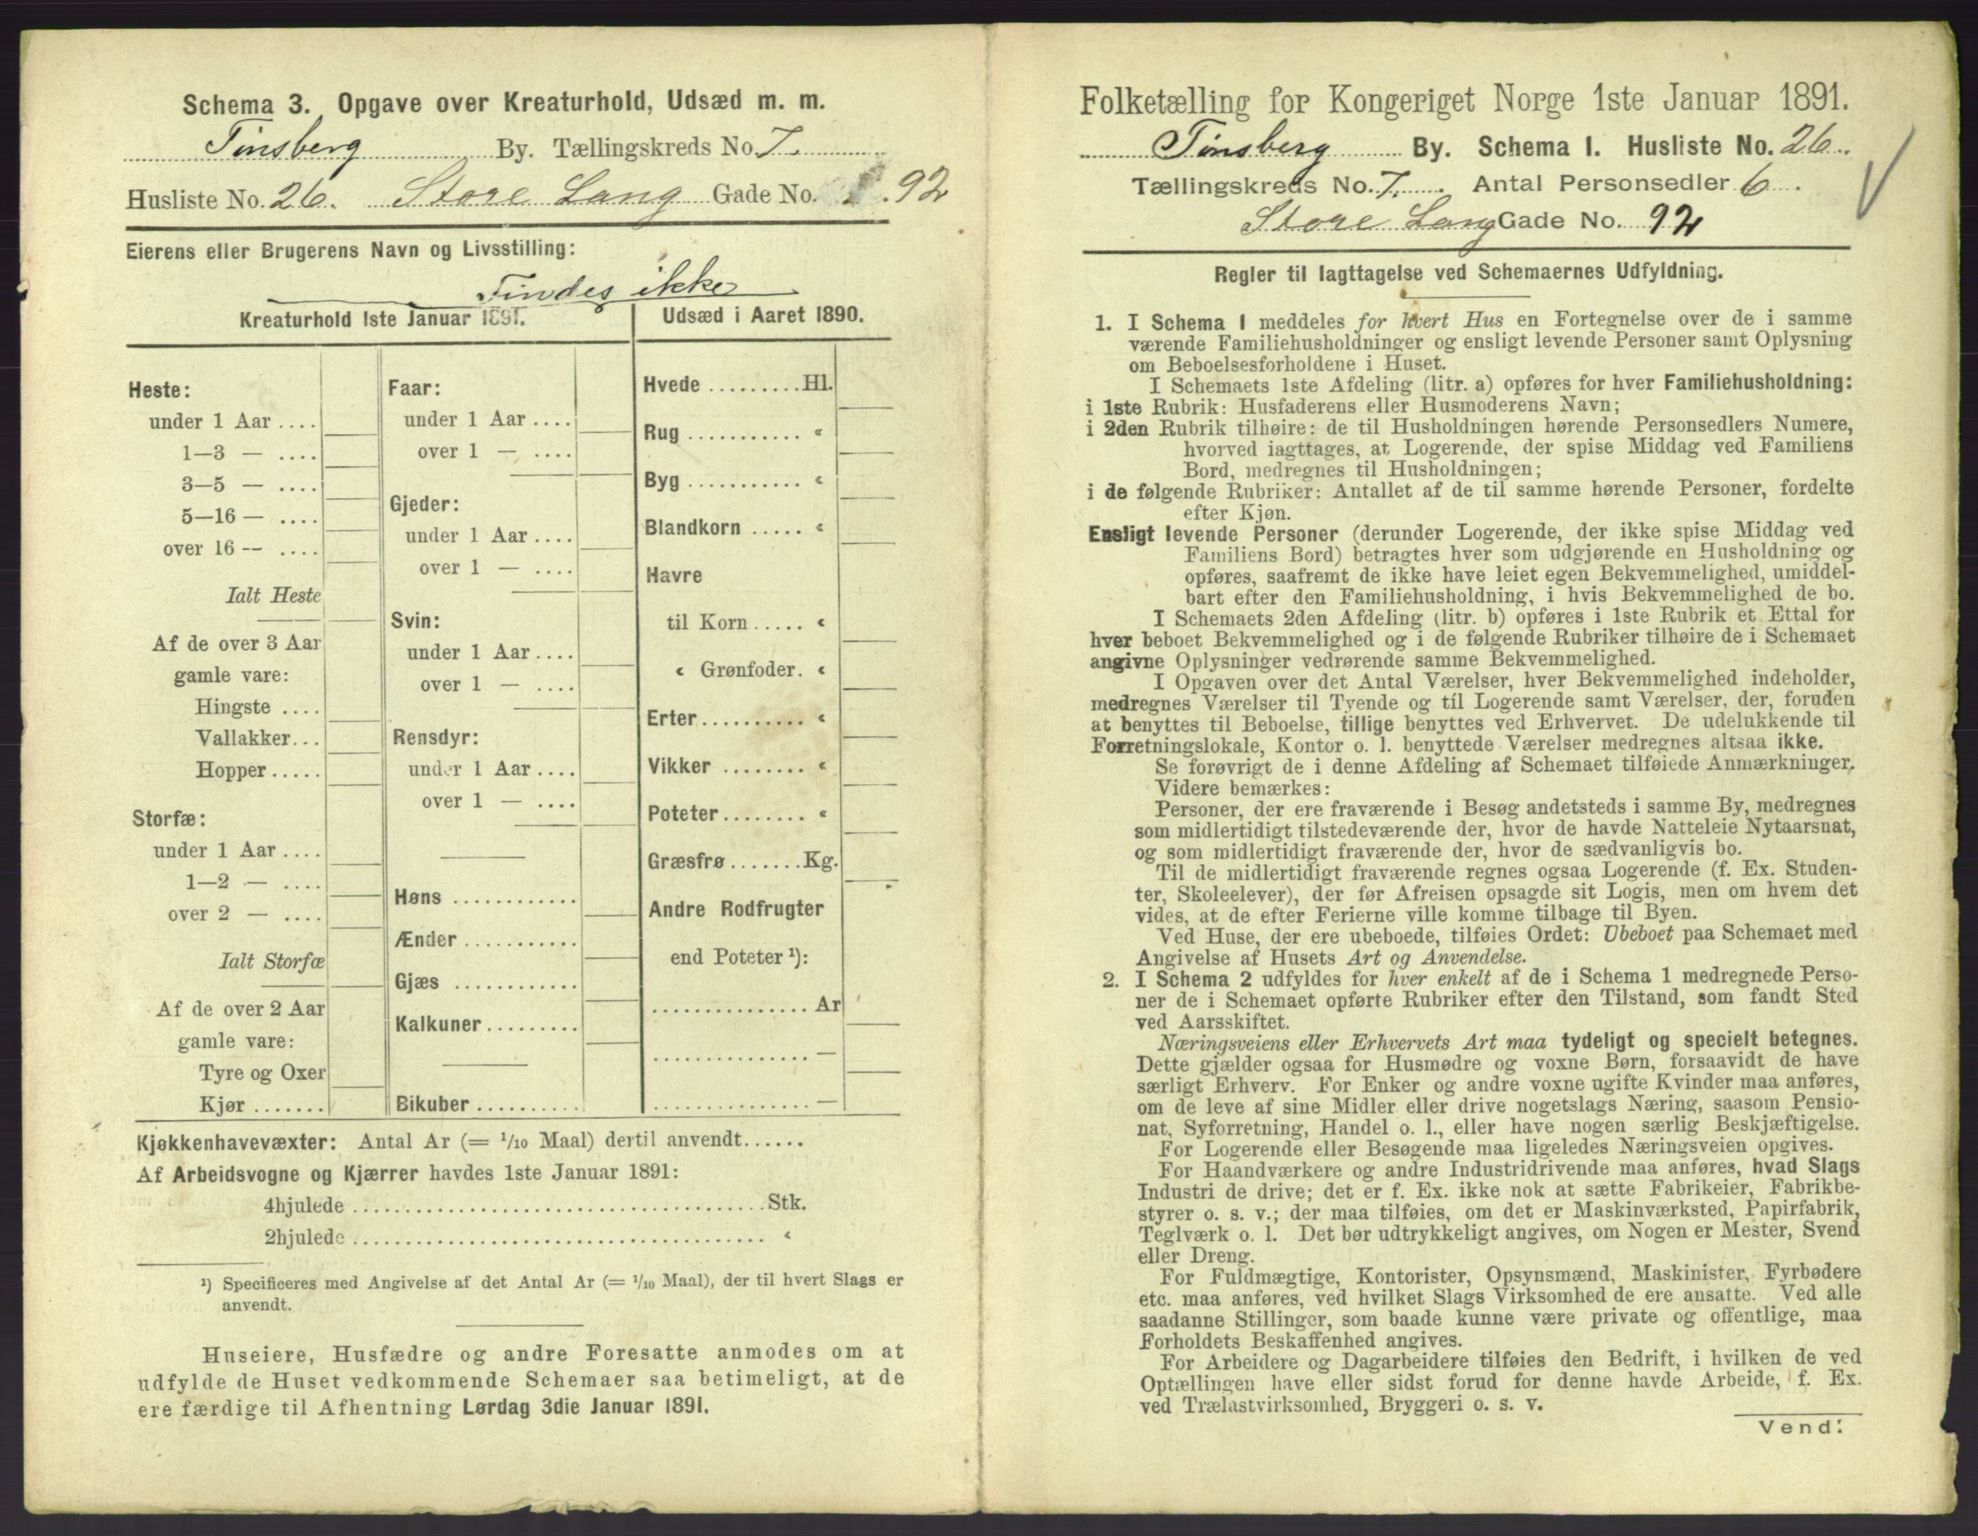 Schema 3. Opgave over Kreaturhold, Udsæd m. m.
Tønsberg By. Tællingskreds No. 7.
Husliste No. 26. Store Lang Gade No. 92
Eierens eller Brugerens Navn og Livsstilling:
Findes ikke
Kreaturhold 1ste Januar 1891.
Heste:
under 1 Aar ....
1—3 — ....
3—5 — ....
5—16 — ....
over 16 — ....
Ialt Heste
Af de over 3 Aar
gamle vare:
Hingste ....
Vallakker...
Hopper.....
Storfæ:
under 1 Aar ....
1—2 — ....
over 2 — ....
Ialt Storfæ
Af de over 2 Aar
gamle vare:
Tyre og Oxer
Kjør .......
Faar:
under 1 Aar ....
over 1 — ....
Gjeder:
under 1 Aar....
over 1 — ....
Svin:
under 1 Aar....
over 1 — ....
Rensdyr:
under 1 Aar....
over 1 — ....
Høns ............
Ænder...........
Gjæs ............
Kalkuner.........
Bikuber ..........
Udsæd i Aaret 1890.
Hvede .........Hl.
Rug ........... «
Byg ........... «
Blandkorn ..... «
Havre
til Korn ..... «
« Grønfoder. «
Erter.......... «
Vikker ........ «
Poteter........ «
Græsfrø.......Kg.
Andre Rodfrugter
end Poteter ¹):
............... Ar
............... —
............... —
Kjøkkenhavevæxter: Antal Ar (= 1/10 Maal) dertil anvendt......
Af Arbeidsvogne og Kjærrer havdes 1ste Januar 1891:
4hjulede ........................................Stk.
2hjulede ........................................ «
¹) Specificeres med Angivelse af det Antal Ar (= 1/10 Maal), der til hvert Slags er
anvendt.
Huseiere, Husfædre og andre Foresatte anmodes om at
udfylde de Huset vedkommende Schemaer saa betimeligt, at de
ere færdige til Afhentning Lørdag 3die Januar 1891.
Folketælling for Kongeriget Norge 1ste Januar 1891.
Tønsberg By. Schema I. Husliste No. 26.
Tællingskreds No. 7. Antal Personsedler 6.
Store Lang Gade No. 92
Regler til Iagttagelse ved Schemaernes Udfyldning.
1. I Schema 1 meddeles for hvert Hus en Fortegnelse over de i samme
værende Familiehusholdninger og ensligt levende Personer samt Oplysning
om Beboelsesforholdene i Huset.
I Schemaets 1ste Afdeling (litr. a) opføres for hver Familiehusholdning:
i 1ste Rubrik: Husfaderens eller Husmoderens Navn;
i 2den Rubrik tilhøire: de til Husholdningen hørende Personsedlers Numere,
hvorved iagttages, at Logerende, der spise Middag ved Familiens
Bord, medregnes til Husholdningen;
i de følgende Rubriker: Antallet af de til samme hørende Personer, fordelte
efter Kjøn.
Ensligt levende Personer (derunder Logerende, der ikke spise Middag ved
Familiens Bord) betragtes hver som udgjørende en Husholdning og
opføres, saafremt de ikke have leiet egen Bekvemmelighed, umiddel-
bart efter den Familiehusholdning, i hvis Bekvemmelighed de bo.
I Schemaets 2den Afdeling (litr. b) opføres i 1ste Rubrik et Ettal for
hver beboet Bekvemmelighed og i de følgende Rubriker tilhøire de i Schemaet
angivne Oplysninger vedrørende samme Bekvemmelighed.
I Opgaven over det Antal Værelser, hver Bekvemmelighed indeholder,
medregnes Værelser til Tyende og til Logerende samt Værelser, der, foruden
at benyttes til Beboelse, tillige benyttes ved Erhvervet. De udelukkende til
Forretningslokale, Kontor o. l. benyttede Værelser medregnes altsaa ikke.
Se forøvrigt de i denne Afdeling af Schemaet tilføiede Anmærkninger.
Videre bemærkes:
Personer, der ere fraværende i Besøg andetsteds i samme By, medregnes
som midlertidigt tilstedeværende der, hvor de havde Natteleie Nytaarsnat,
og som midlertidigt fraværende der, hvor de sædvanligvis bo.
Til de midlertidigt fraværende regnes ogsaa Logerende (f. Ex. Studen-
ter, Skoleelever), der før Afreisen opsagde sit Logis, men om hvem det
vides, at de efter Ferierne ville komme tilbage til Byen.
Ved Huse, der ere ubeboede, tilføies Ordet: Ubeboet paa Schemaet med
Angivelse af Husets Art og Anvendelse.
2. I Schema 2 udfyldes for hver enkelt af de i Schema 1 medregnede Perso-
ner de i Schemaet opførte Rubriker efter den Tilstand, som fandt Sted
ved Aarsskiftet.
Næringsveiens eller Erhvervets Art maa tydeligt og specielt betegnes.
Dette gjælder ogsaa for Husmødre og voxne Børn, forsaavidt de have
særligt Erhverv. For Enker og andre voxne ugifte Kvinder maa anføres,
om de leve af sine Midler eller drive nogetslags Næring, saasom Pensio-
nat, Syforretning, Handel o. l., eller have nogen særlig Beskjæftigelse.
For Logerende eller Besøgende maa ligeledes Næringsveien opgives.
For Haandværkere og andre Industridrivende maa anføres, hvad Slags
Industri de drive; det er f. Ex. ikke nok at sætte Fabrikeier, Fabrikbe-
styrer o. s. v.; der maa tilføies, om det er Maskinværksted, Papirfabrik,
Teglværk o. l. Det bør udtrykkeligt angives, om Nogen er Mester, Svend
eller Dreng.
For Fuldmægtige, Kontorister, Opsynsmænd, Maskinister, Fyrbødere
etc. maa anføres, ved hvilket Slags Virksomhed de ere ansatte. Ved alle
saadanne Stillinger, som baade kunne være private og offentlige, maa
Forholdets Beskaffenhed angives.
For Arbeidere og Dagarbeidere tilføies den Bedrift, i hvilken de ved
Optællingen have eller sidst forud for denne havde Arbeide, f. Ex.
ved Trælastvirksomhed, Bryggeri o. s. v.
Vend!